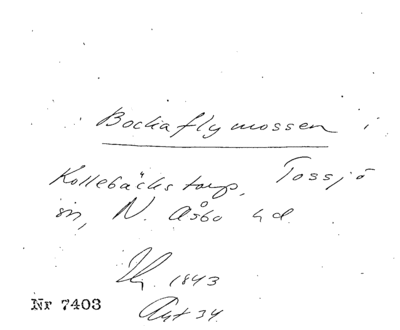 Bockaflymossen i
Kollebäckstorp, Tossjö
sn, N. Åsbo hd.
Hy. 1843
Akt 34.
Nr 7403